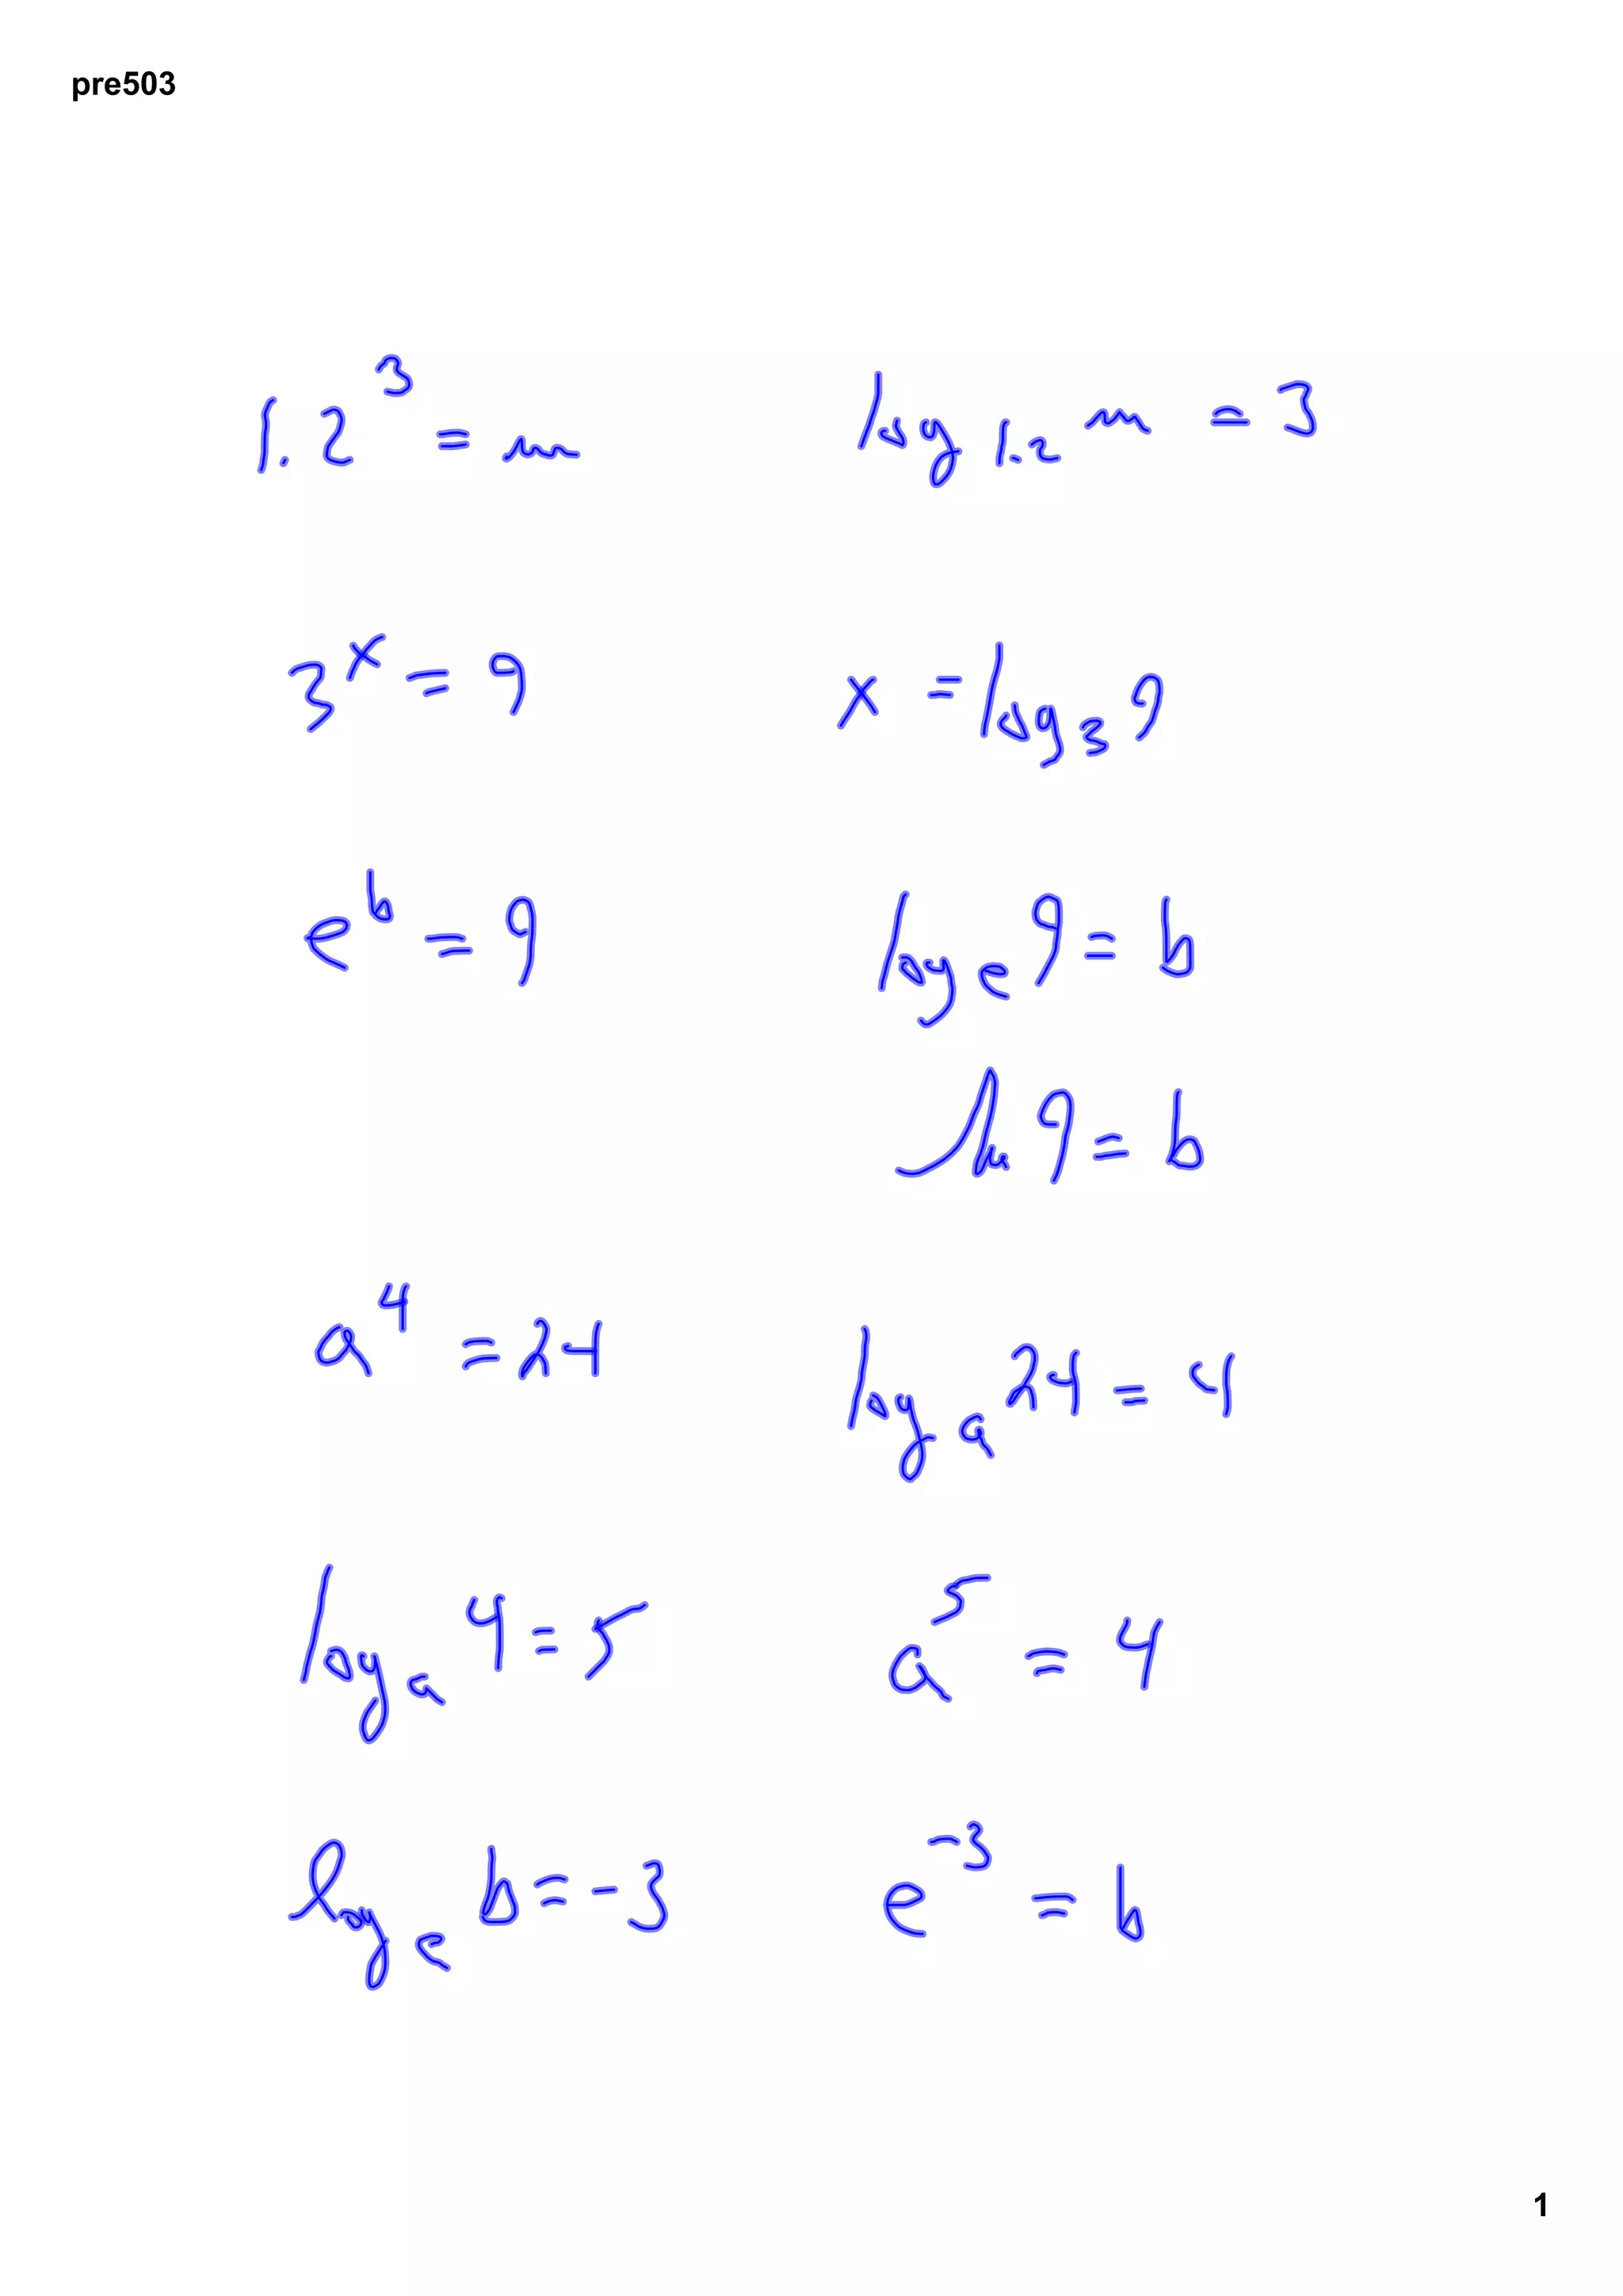 pre503
1.2³ = m    log₁.₂ m = 3
3ˣ = 9    x = log₃ 9
eᵇ = 9    logₑ 9 = b
ln 9 = b
a⁴ = 24    logₐ 24 = 4
logₐ 4 = 5    a⁵ = 4
logₑ b = -3    e⁻³ = b
1